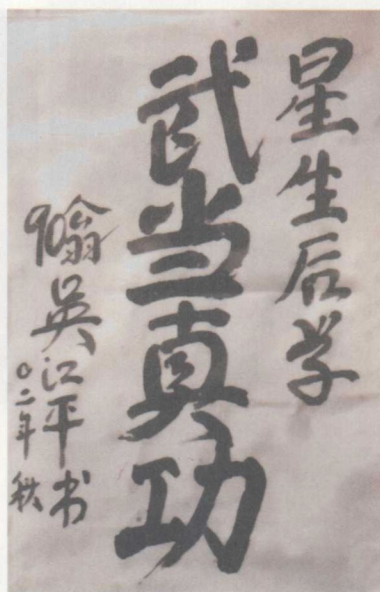 星生后学
武当真功
90翁吴江平书
〇二年秋